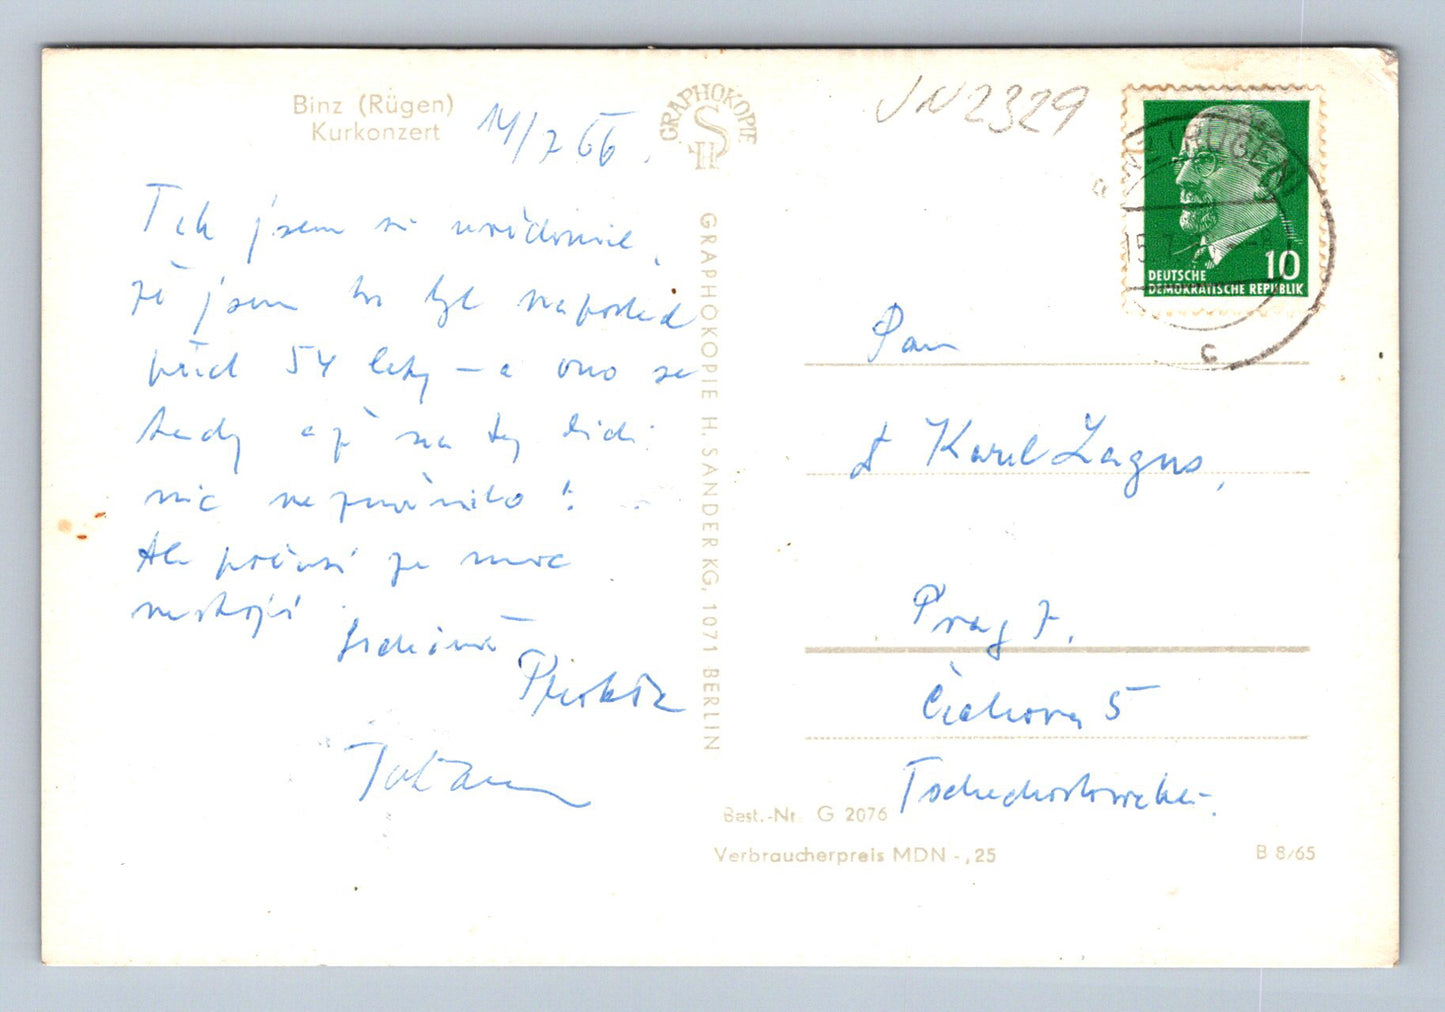 Binz (Rügen)
Kurkonzert
14/7 66.
GRAPHOKOPIE
H S
JN 2329
Tak jsem si uvědomil,
že jsem tu byl naposled
před 54 lety – a ono se
tedy až na ty lidi
nic nezměnilo!
Ale počasí za moc
nestojí
Srdečně
GRAPHOKOPIE H. SANDER KG, 1071 BERLIN
10
DEUTSCHE
DEMOKRATISCHE REPUBLIK
c
Pan
Karel Zagus,
Prag 7.
Čechova 5
Tschechoslowakei.
Best.-Nr. G 2076
Verbraucherpreis MDN -,25
B 8/65